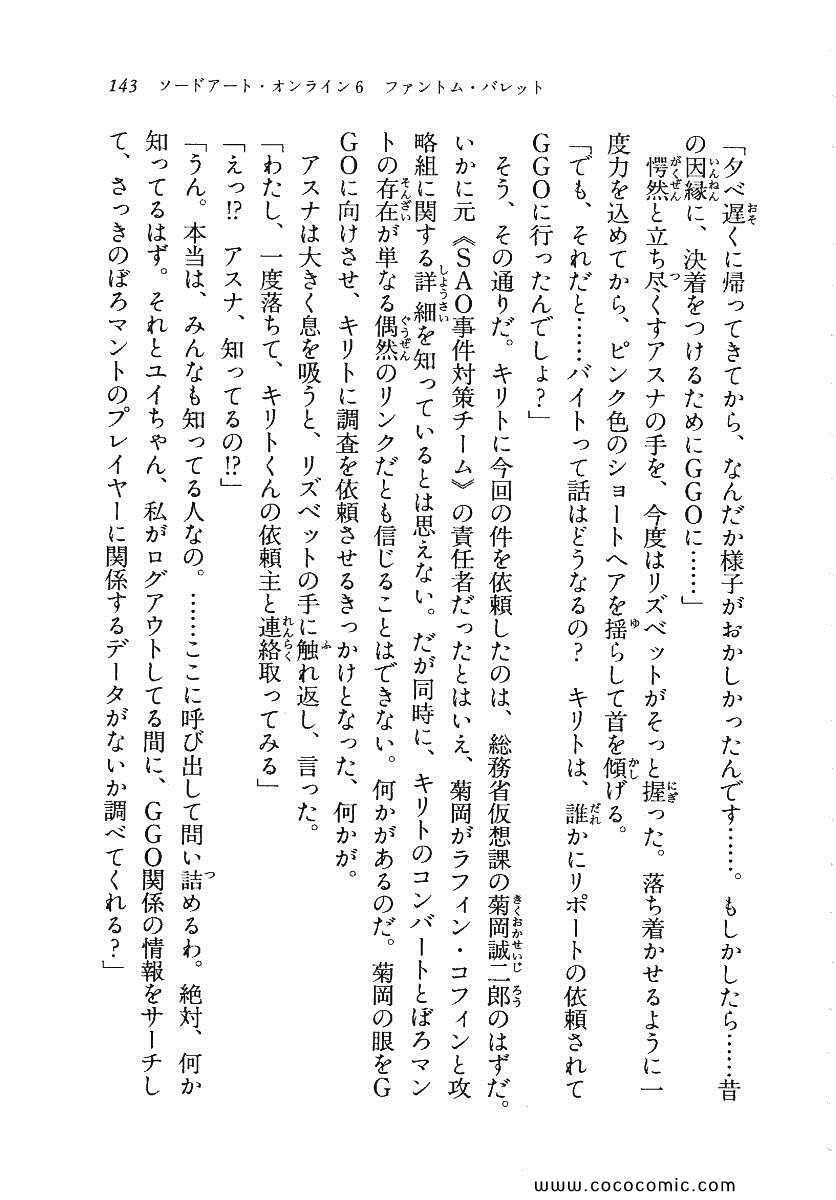 143　ソードアート・オンライン6　ファントム・バレット
「夕べ遅くに帰ってきてから、なんだか様子がおかしかったんです……。もしかしたら……昔
の因縁に、決着をつけるためにGGOに……」
　愕然と立ち尽くすアスナの手を、今度はリズベットがそっと握った。落ち着かせるように一
度力を込めてから、ピンク色のショートヘアを揺らして首を傾げる。
「でも、それだと……バイトって話はどうなるの？　キリトは、誰かにリポートの依頼されて
GGOに行ったんでしょ？」
　そう、その通りだ。キリトに今回の件を依頼したのは、総務省仮想課の菊岡誠二郎のはずだ。
いかに元《SAO事件対策チーム》の責任者だったとはいえ、菊岡がラフィン・コフィンと攻
略組に関する詳細を知っているとは思えない。だが同時に、キリトのコンバートとぼろマン
トの存在が単なる偶然のリンクだとも信じることはできない。何かがあるのだ。菊岡の眼をG
GOに向けさせ、キリトに調査を依頼させるきっかけとなった、何かが。
　アスナは大きく息を吸うと、リズベットの手に触れ返し、言った。
「わたし、一度落ちて、キリトくんの依頼主と連絡取ってみる」
「えっ!?　アスナ、知ってるの!?」
「うん。本当は、みんなも知ってる人なの。……ここに呼び出して問い詰めるわ。絶対、何か
知ってるはず。それとユイちゃん、私がログアウトしてる間に、GGO関係の情報をサーチし
て、さっきのぼろマントのプレイヤーに関係するデータがないか調べてくれる？」
www.cococomic.com